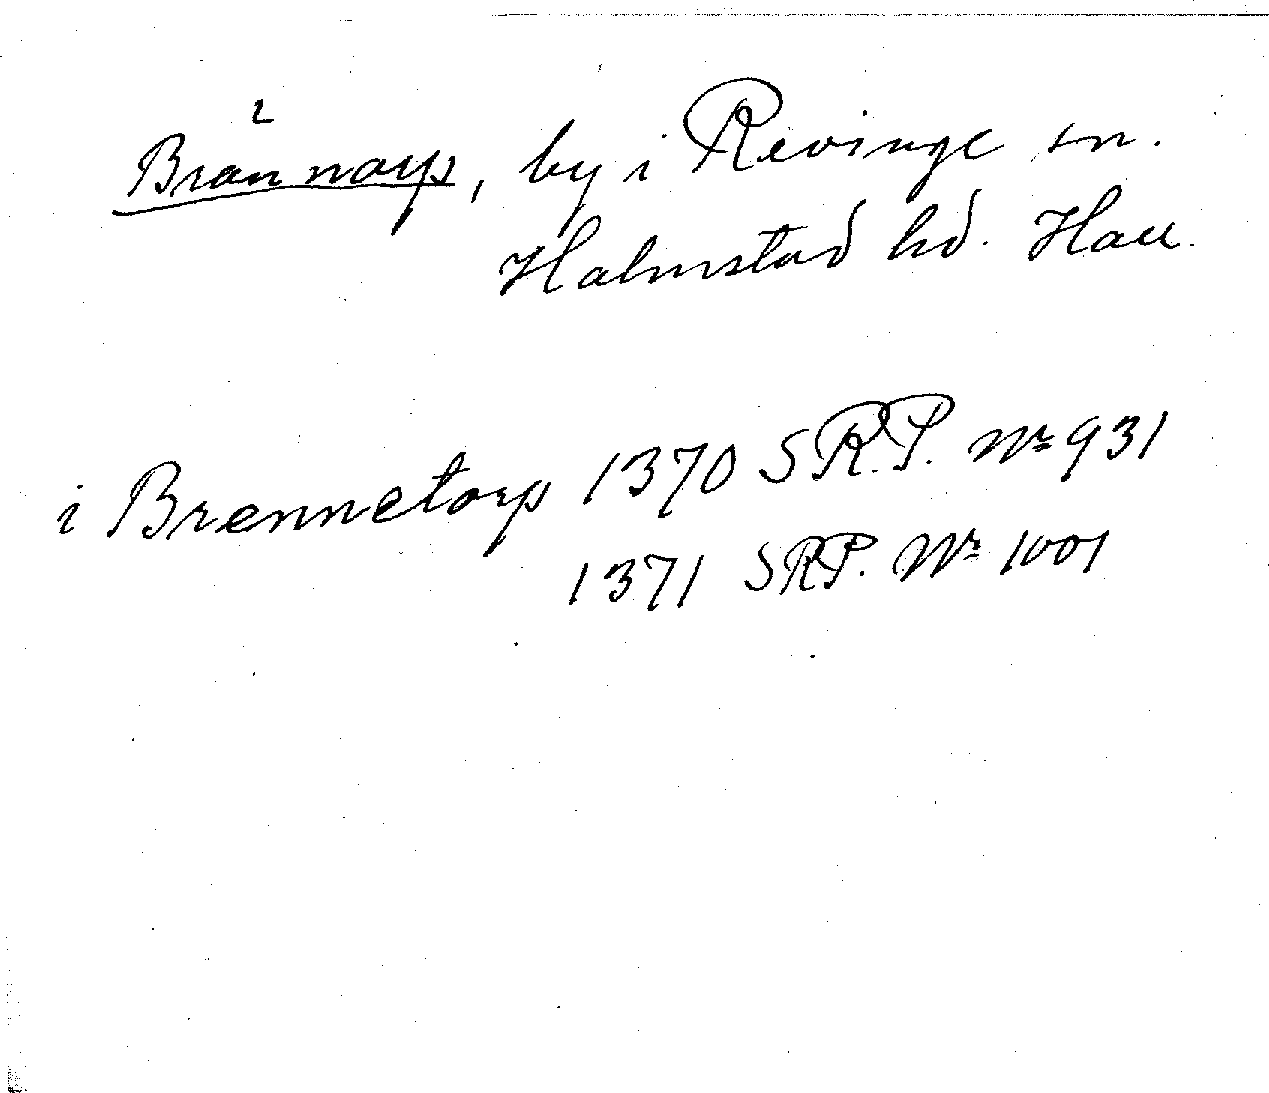 2
Brännarp, by i Revinge sn.
Halmstad hd. Hall.
i Brennetorp 1370 S.R.P. Nr 931
1371 SRP. Nr 1001